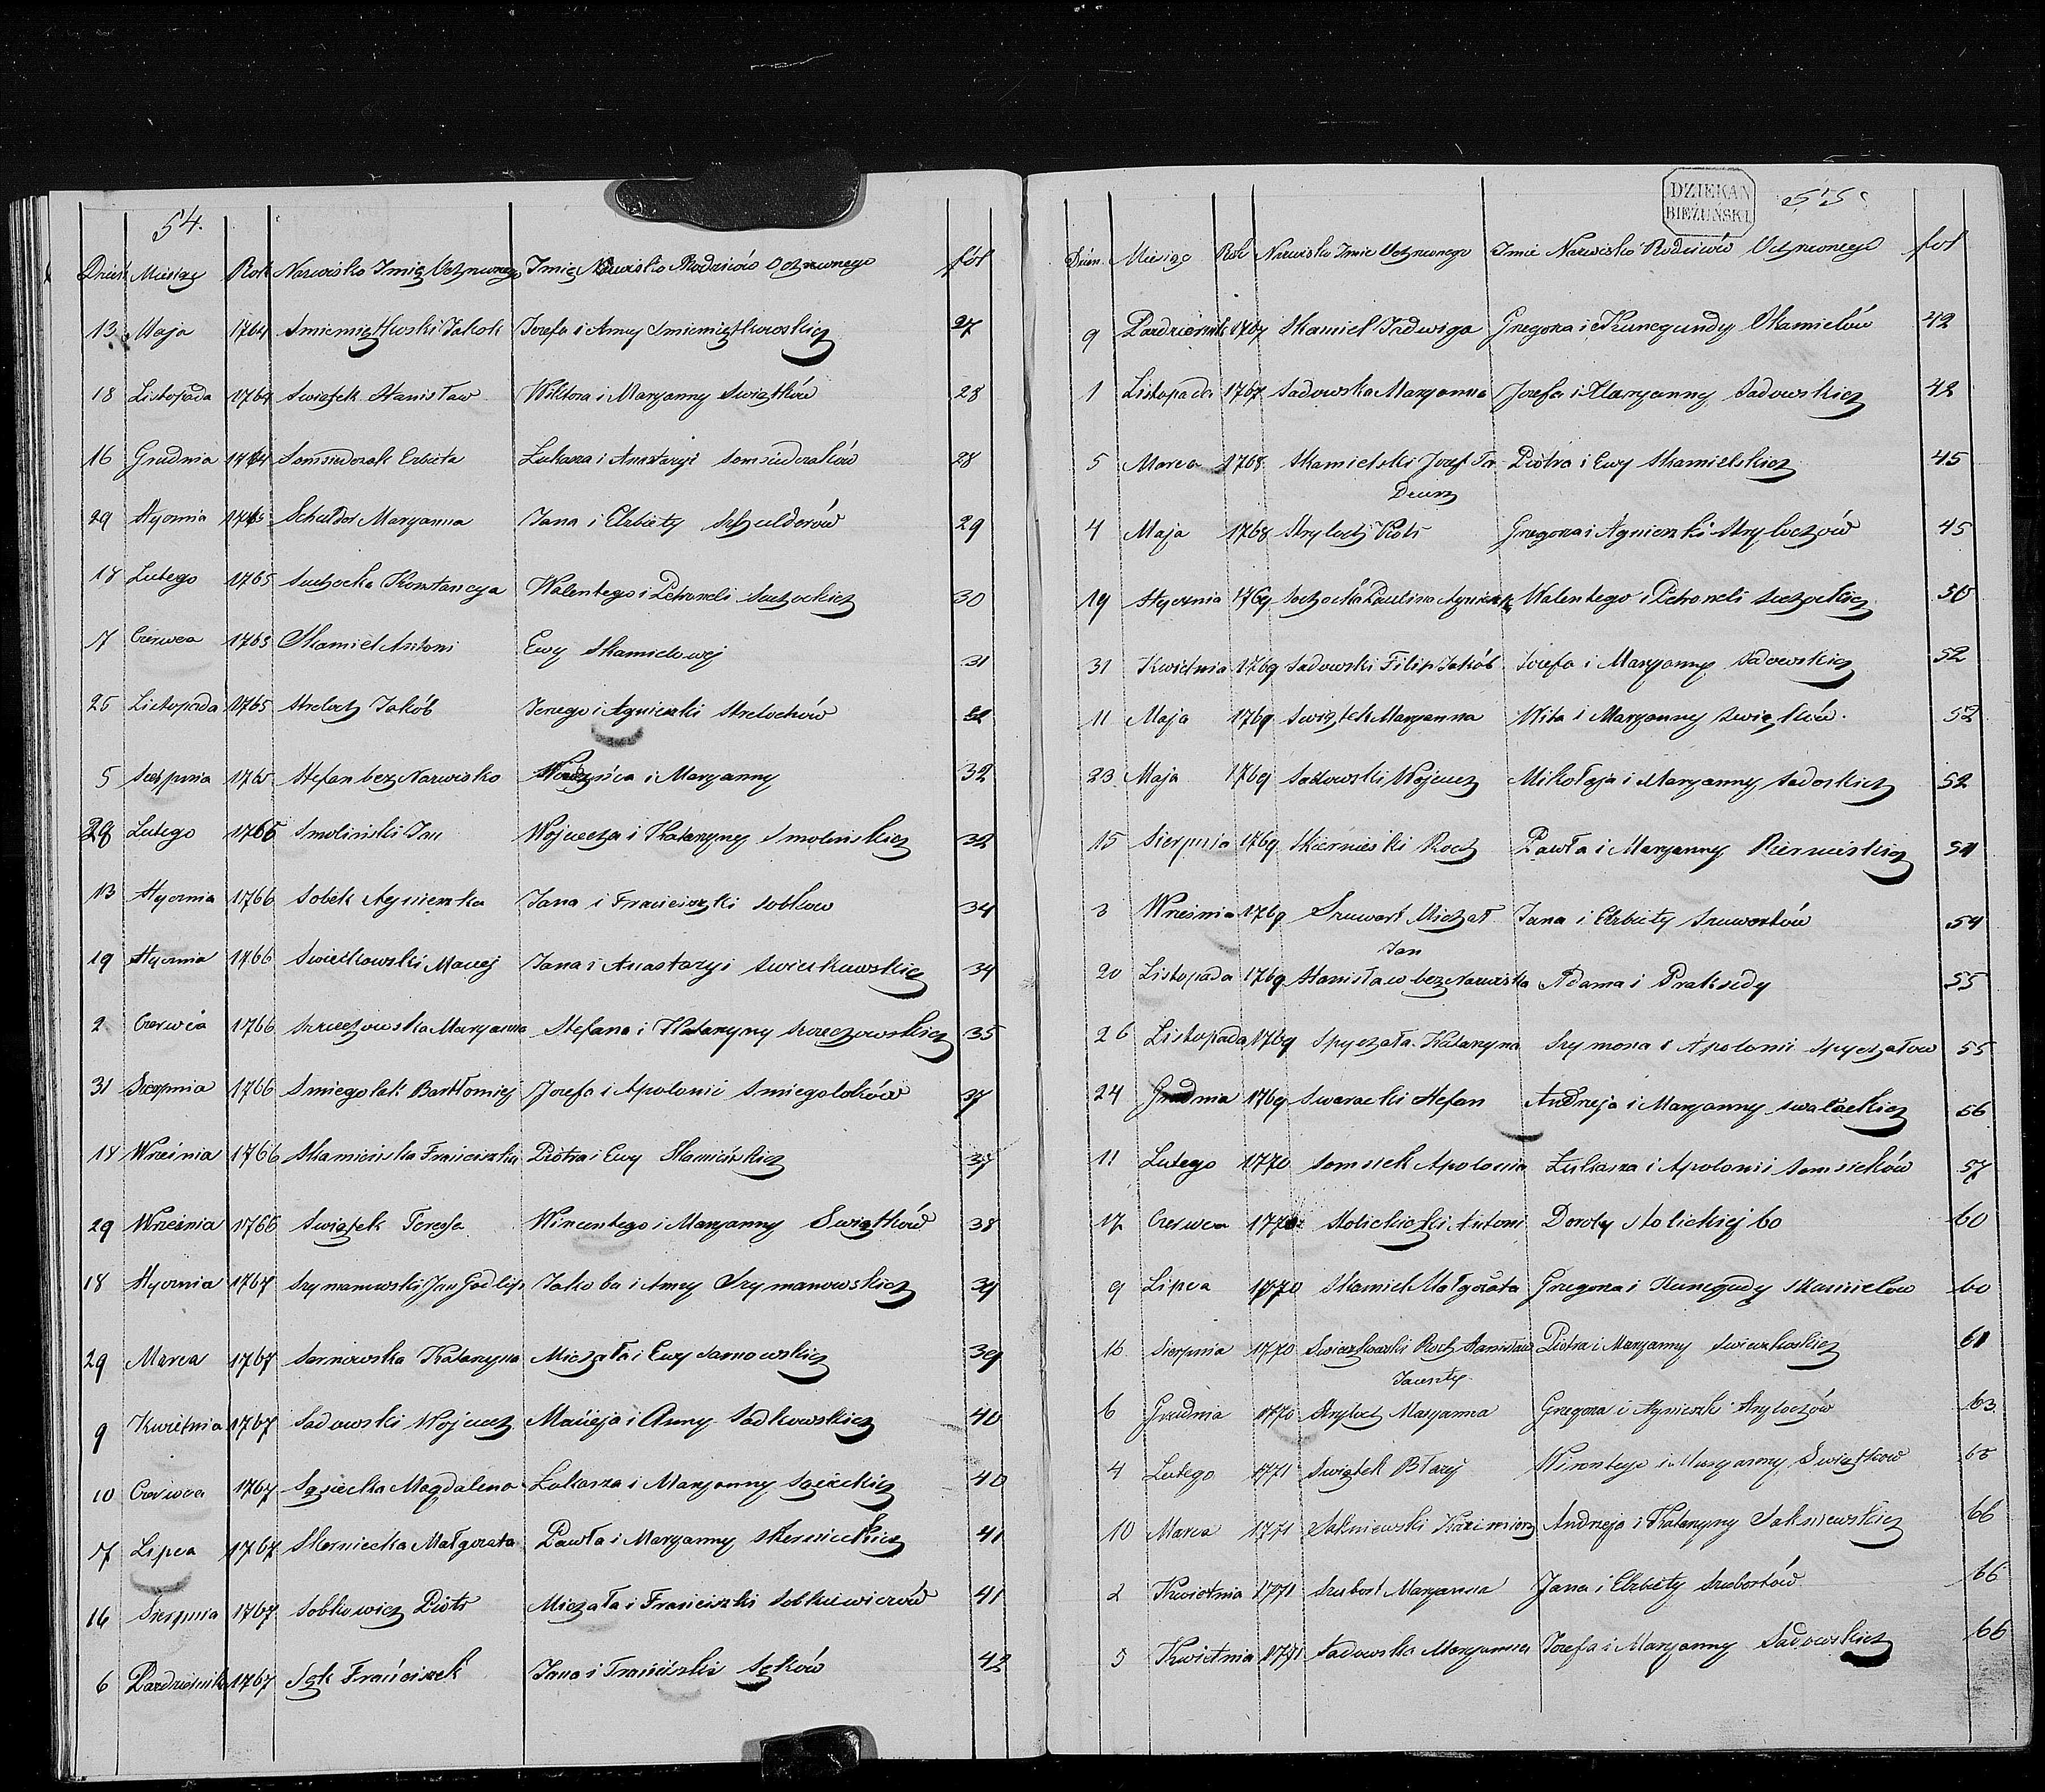 54.
Dzień Miesiąc Rok Nazwisko Imię Ochrzconego Imię Nazwisko Rodziców Ochrzconego fol
13 Maja 1764 Smiemiętkowski Jakob Jozefa i Anny Smiemiętkowskich 27
18 Listopada 1764 Swiątek Stanisław Wiktora i Maryanny Swiątków 28
16 Grudnia 1764 Somsiedczak Erbieta Łukasza i Anastazyi Somsiedczaków 28
29 Stycznia 1765 Schuldor Maryanna Jana i Elzbiety 29
18 Lutego 1765 Suchocka Konstancya Walentego i Petroneli Suchockich 30
7 Czerwca 1765 Skamiel Antoni Ewy Skamielowej 31
25 Listopada 1765 Streloch Jakób Jerzego i Agnieszki Strelochów 32
5 Sierpnia 1765 Stefan bez Nazwiska i Maryanny 32
28 Lutego 1766 Smoliński Jan Wojciecha i Katarzyny Smolinskich 32
13 Stycznia 1766 Sobek Agnieszka Jana i Franciszki Sobkow 34
19 Stycznia 1766 Swietkowski Maciej Jana i Anastazyi Swietkowskich 34
2 Czerwca 1766 Szzechowska Maryanna Stefana i Katarzyny Szzechowskich 35
31 Sierpnia 1766 Smiegolak Bartłomiej Jozefa i Apolonii Smiegolaków 37
18 Wrzesnia 1766 Skamielska Franciszka Piotra i Ewy Skamielskich 37
29 Wrzesnia 1766 Swiątek Teressa Wincentego i Maryanny Swiątków 38
18 Stycznia 1767 Szymanowski Jan Godlip Jakoba i Anny Szymanowskich 39
29 Marca 1767 Sarnowska Katarzyna Michała i Ewy Sarnowskich 39
9 Kwietnia 1767 Sadowski Wojciech Macieja i Anny Sadkowskich 40
10 Czerwca 1767 Sąsiecka Magdalena Łukasza i Maryanny Sąsieckich 40
7 Lipca 1767 Skerniecka Małgorzata Pawła i Maryanny Skernieckich 41
16 Sierpnia 1767 Sobkowicz Piotr Michała i Franciszki Sobkiewiczów 41
6 Pazdziernika 1767 Sęk Franciszek Jana i Franciszki Sęków 42
DZIEKAN
BIEŻUŃSKI
55
Dzień Miesiąc Rok Nazwisko Imie Ochrzconego Imie Nazwisko Rodziców Ochrzconego fol
9 Pazdziernik 1767 Skamiel Jadwiga Gregorza i Kunegundy Skamielów 42
1 Listopada 1767 Sadowska Maryanna Jozefa i Maryanny Sadowskich 42
5 Marca 1768 Skamielski Jozef Ta Piotra i Ewy Skamielskich 45
Deusz
4 Maja 1768 Stryloch Piotr Gregorza i Agnieszki Strylochów 45
19 Stycznia 1769 Sochocka Paulina Agnieszka Walentego i Petroneli Suchockich 50
31 Kwietnia 1769 Sadowski Filip Jakób Jozefa i Maryanny Sadowskich 52
11 Maja 1769 Swiątek Maryanna Wita i Maryanny Swiątków. 52
23 Maja 1769 Sadowski Wojciech Mikołaja i Maryanny Sadoskich 52
15 Sierpnia 1769 Skiernieski Roch Pawła i Maryanny 54
3 Wrzesnia 1769 Szuwart Michał Jana i Elzbiety Szuwartów 54
Jan
20 Listopada 1769 Stanisław bez Nazwiska Adama i Praksedy 55
26 Listopada 1769 Spychała Katarzyna Szymona i Apolonii Spychałow 55
24 Grudnia 1769 Swaracki Stefan Andrzeja i Maryanny Swałackich 56
11 Lutego 1770 Somsiek Apolonia Łukasza i Apolonii Somsieków 57
17 Czerwca 1770 Antoni Doroty Stolickiej 60 60
9 Lipca 1770 Skamiel Małgorzata Gregorza i Kunegudy Skamielow 60
16 Sierpnia 1770 Swieczkowski Roch Stanisław Piotra i Maryanny Swieczkoskich 61
Jacenty
6 Grudnia 1770 Stryloch Maryanna Gregorza i Agnieszki Strylochów 63
4 Lutego 1771 Swiątek Błazej Wincentego i Maryanny Swiątkow 65
10 Marca 1771 Sakniewski Kazimierz Andrzeja i Katarzyny Sakniewskich 66
2 Kwietnia 1771 Szubort Maryanna Jana i Elzbiety Szubortów 66
5 Kwietnia 1771 Sadowska Maryanna Jozefa i Maryanny Sadowskich 66